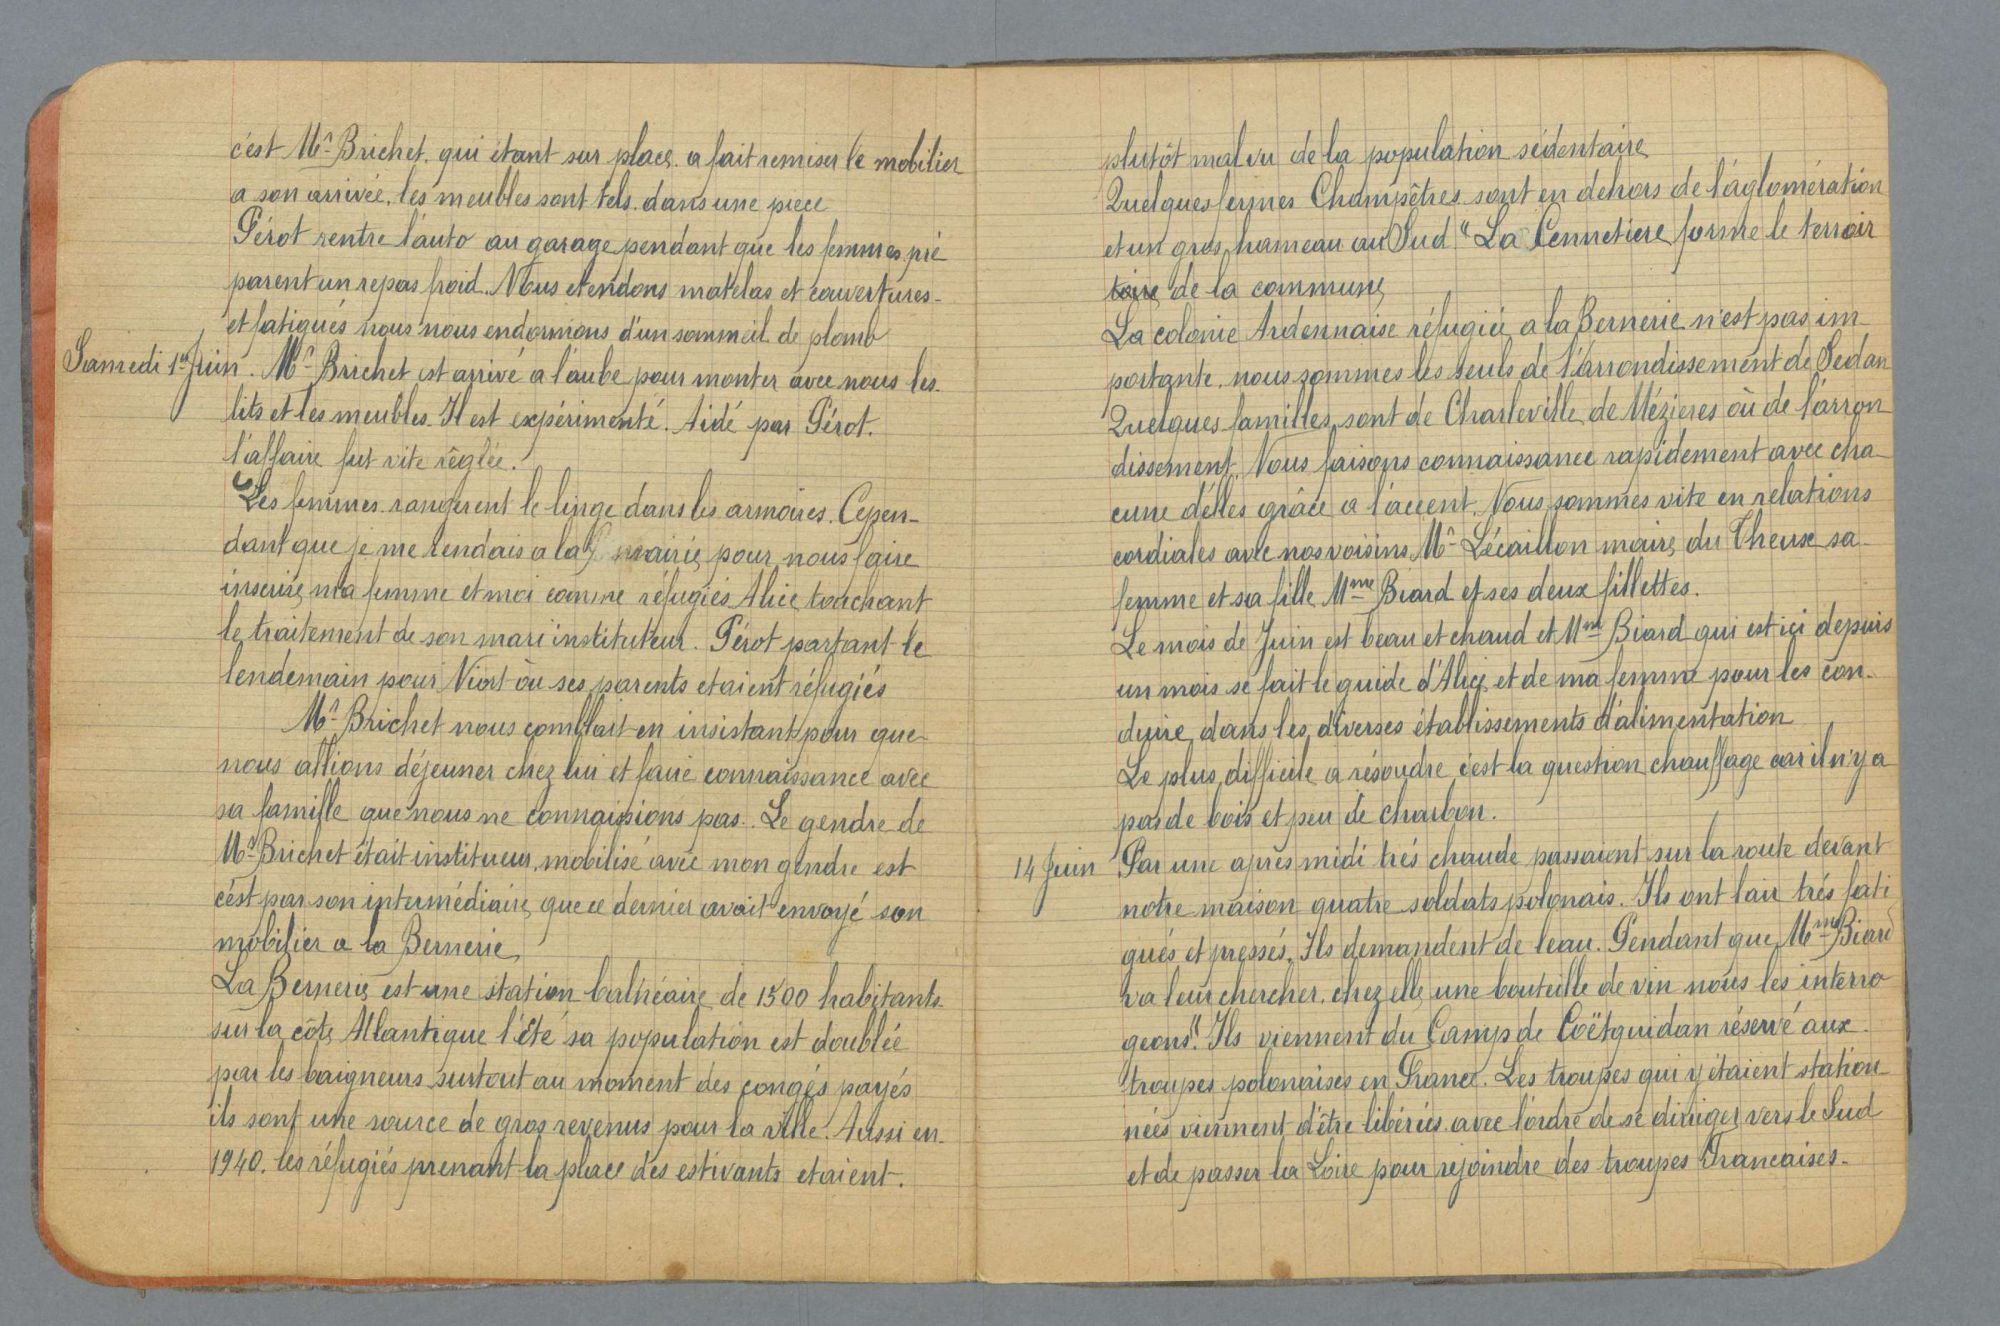 c'est Mr Brichet. qui étant sur place. a fait remiser le mobilier
a son arrivée, les meubles sont tels. dans une piece
Pérot rentre l'auto au garage pendant que les femmes pré
parent un repas froid. Nous etendons matelas et couvertures-
et fatigués nous nous endormons d'un sommeil de plomb
Samedi 1er Juin. Mr Brichet est arrivé a l'aube pour monter avec nous les
lits et les meubles. Il est expérimenté. Aidé par Pérot.
l'affaire fut vite réglée.
Les femmes rangerent le linge dans les armoires. Cepen-
dant que je me rendais a la mairie pour nous faire
inscrire ma femme et moi comme réfugiés Alice touchant
le traitement de son mari instituteur. Pérot partant le
lendemain pour Niort où ses parents etaient réfugiés
Mr Brichet nous comblait en insistant pour que
nous allions déjeuner chez lui et faire connaissance avec
sa famille que nous ne connaissions pas. Le gendre de
Mr Brichet était institueur, mobilisé avec mon gendre est
c'est par son intermédiaire que ce dernier avait envoyé son
mobilier a la Bernerie
La Bernerie est une station balnéaire de 1500 habitants
sur la côte Atlantique l'été sa population est doublée
par les baigneurs surtout au moment des congés payés
ils sont une source de gros revenus pour la ville. Aussi en
1940. les réfugiés prenant la place des estivants etaient.
plutôt mal vu de la population sédentaire
Quelques fermes Champêtres sont en dehors de l'aglomération
et un gros hameau au Sud "La forme le terroir
de la commune
La colonie Ardennaise réfugiée a la Bernerie n'est pas im
portante. nous sommes les seuls de l'arrondissement de Sedan
Quelques familles sont de Charleville de Mézieres où de l'arron
dissement. Nous faisons connaissance rapidement avec cha
cune d'élles grâce a l'accent. Nous sommes vite en relations
cordiales avec nos voisins Mr Lécaillon maire du Theux sa
femme et sa fille Mme Biard et ses deux fillettes.
Le mois de Juin est beau et chaud et Mme Biard qui est içi depuis
un mois se fait le guide d'Alice et de ma femme pour les con-
duire dans les diverses établissements d'alimentation
Le plus difficile a résoudre c'est la question chauffage car il n'y a
pas de bois et peu de charbon.
14 Juin Par une aprés midi trés chaude passaient sur la route devant
notre maison quatre soldats polonais. Ils ont l'air trés fati
gués et pressés. Ils demandent de l'eau. Pendant que Mme Biard
va leur chercher. chez elle une bouteille de vin nous les interro
geons". Ils viennent du Camp de Coëtquidan réservé aux
troupes polonaises en France. Les troupes qui y étaient station
nées viennent d'être libérées avec l'ordre de se diriger vers le Sud
et de passer la Loire pour rejoindre des troupes Francaises-